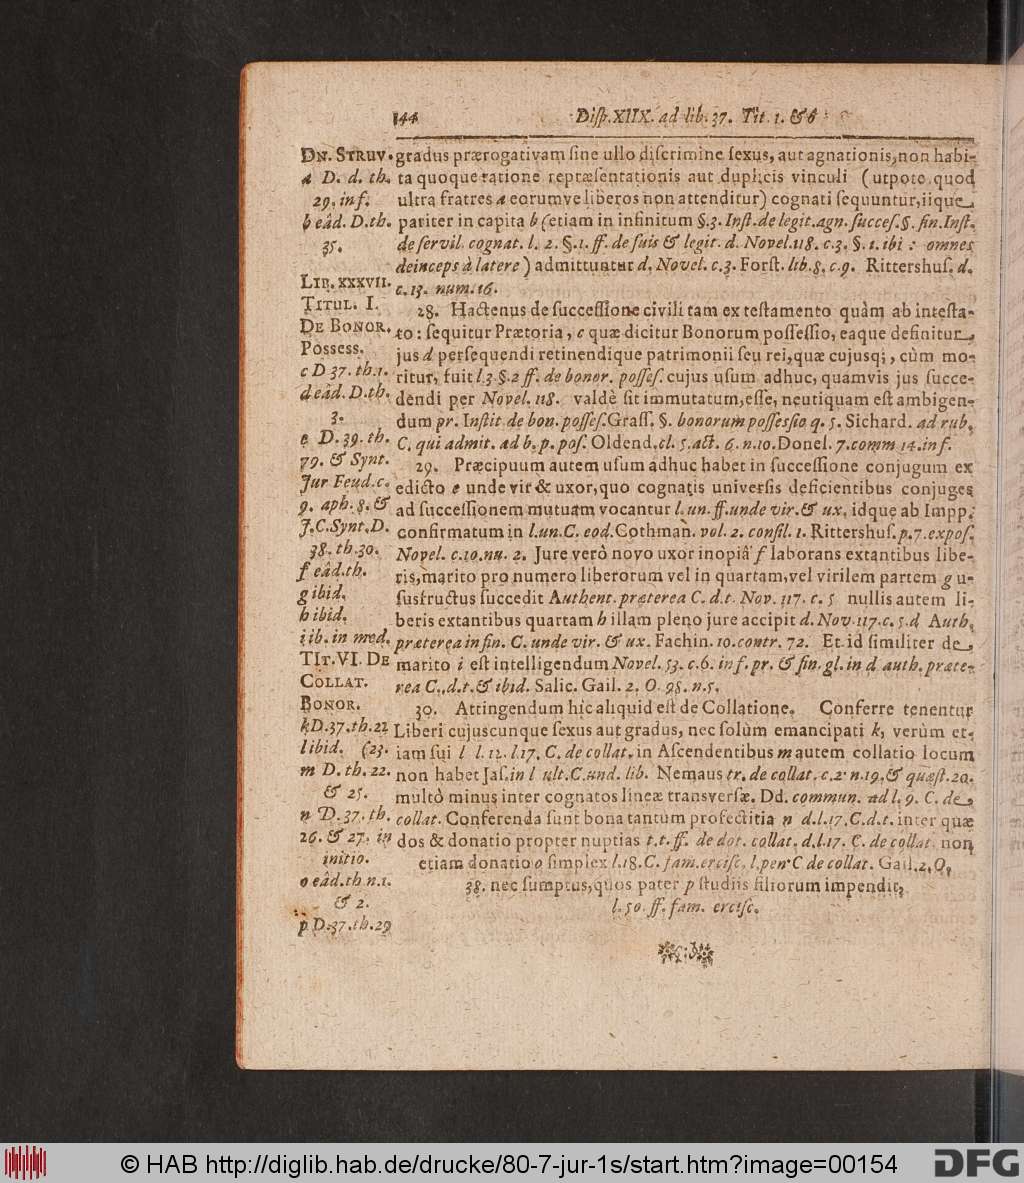 144 Diſp. XIIX. ad lib. 37. Tit. 1. & 6
Dn. Struv.
a D. d. th.
29. inf.
b eâd. D. th.
35.
Lib. xxxvii.
Titul. I.
De Bonor.
Possess.
c D 37. th. 1.
d eâd. D. th.
3.
e D. 39. th.
79. & Synt.
Jur Feud. c.
9. aph. 8. &
J. C. Synt. D.
38. th. 30.
f eâd. th.
g ibid.
h ibid.
i ib. in med.
Tit. VI. De
Collat.
Bonor.
k D. 37. th. 22
l ibid. (23.
m D. th. 22.
& 25.
n D. 37. th.
26. & 27. in
initio.
o eâd. th n. 1.
& 2.
p D. 37. th. 29
gradus prærogativam ſine ullo diſcrimine ſexus, aut agnationis, non habi-
ta quoque ratione repræſentationis aut duplicis vinculi (utpote quod
ultra fratres a eorumve liberos non attenditur) cognati ſequuntur, iique
pariter in capita b (etiam in infinitum §. 3. Inſt. de legit. agn. ſucceſ. §. fin. Inſt.
de ſervil. cognat. l. 2. §. 1. ff. de ſuis & legit. d. Novel. 118. c. 3. §. 1. ibi : omnes
deinceps à latere) admittuntur d. Novel. c. 3. Forſt. lib. 8. c. 9. Rittershuſ. d.
c. 13. num. 16.
28. Hactenus de ſucceſſione civili tam ex teſtamento quàm ab inteſta-
to : ſequitur Prætoria, c quæ dicitur Bonorum poſſeſſio, eaque definitur,
jus d perſequendi retinendique patrimonii ſeu rei, quæ cujusq; , cùm mo-
ritur, fuit l. 3 §. 2 ff. de bonor. poſſeſ. cujus uſum adhuc, quamvis jus ſucce-
dendi per Novel. 118. valdè ſit immutatum, eſſe, neutiquam eſt ambigen-
dum pr. Inſtit de bon. poſſeſ. Graſſ. §. bonorum poſſeſſio q. 5. Sichard. ad rub.
C. qui admit. ad b. p. poſ. Oldend. cl. 5. act. 6. n. 10. Donel. 7. comm 14. inf.
29. Præcipuum autem uſum adhuc habet in ſucceſſione conjugum ex
edicto e unde vir & uxor, quo cognatis univerſis deficientibus conjuges
ad ſucceſſionem mutuam vocantur l. un. ff. unde vir. & ux. idque ab Impp.
confirmatum in l. un. C. eod. Cothman. vol. 2. conſil. 1. Rittershuſ. p. 7. expoſ.
Novel. c. 10. nu. 2. Jure verò novo uxor inopiâ f laborans extantibus libe-
ris, marito pro numero liberorum vel in quartam, vel virilem partem g u-
ſusfructus ſuccedit Authent. præterea C. d. t. Nov. 117. c. 5 nullis autem li-
beris extantibus quartam h illam pleno jure accipit d. Nov. 117. c. 5. d Auth.
præterea in fin. C. unde vir. & ux. Fachin. 10. contr. 72. Et id ſimiliter de
marito i eſt intelligendum Novel. 53. c. 6. inf. pr. & fin. gl. in d auth. præte-
rea C. d. t. & ibid. Salic. Gail. 2. O. 98. n. 5.
30. Attingendum hic aliquid eſt de Collatione. Conferre tenentur
Liberi cujuscunque ſexus aut gradus, nec ſolùm emancipati k, verùm et-
iam ſui l l. 12. l. 17. C. de collat. in Aſcendentibus m autem collatio locum
non habet Jaſ. in l ult. C. und. lib. Nemaus tr. de collat. c. 2. n. 19. & quæſt. 20.
multò minus inter cognatos lineæ transverſæ. Dd. commun. ad l. 9. C. de
collat. Conferenda ſunt bona tantum profectitia n d. l. 17. C. d. t. inter quæ
dos & donatio propter nuptias t. t. ff. de dot. collat. d. l. 17. C. de collat. non
etiam donatio o ſimplex l. 18. C. fam. erciſc. l. pen. C de collat. Gail. 2. O.
38. nec ſumptus, quos pater p ſtudiis filiorum impendit,
l. 50. ff. fam. erciſc.
© HAB http://diglib.hab.de/drucke/80-7-jur-1s/start.htm?image=00154
DFG